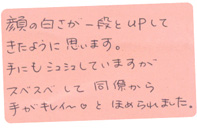 顔の白さが一段とUPして
きたように思います。
手にもシュシュしていますが
スベスベして同僚から
手がキレイ〜♡とほめられました。